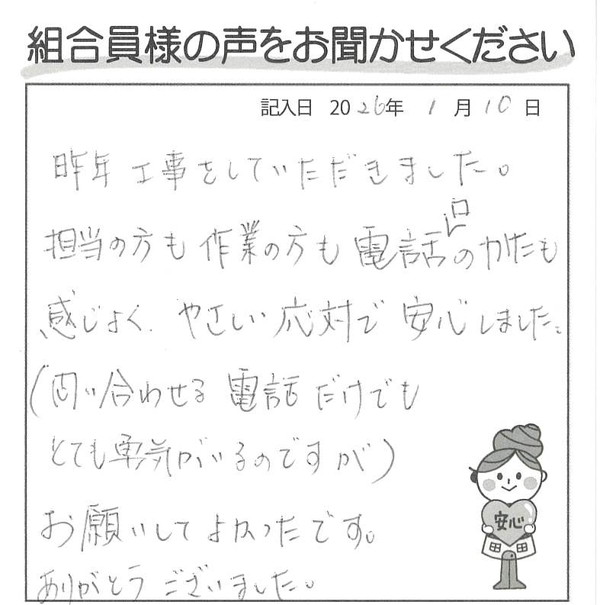 組合員様の声をお聞かせください
記入日 2026年 1月10日
昨年工事をしていただきました。
担当の方も作業の方も電話口のかたも
感じよく、やさしい応対で安心しました。
(問い合わせる電話だけでも
とても勇気がいるのですが)
お願いしてよかったです。
ありがとうございました。
安心